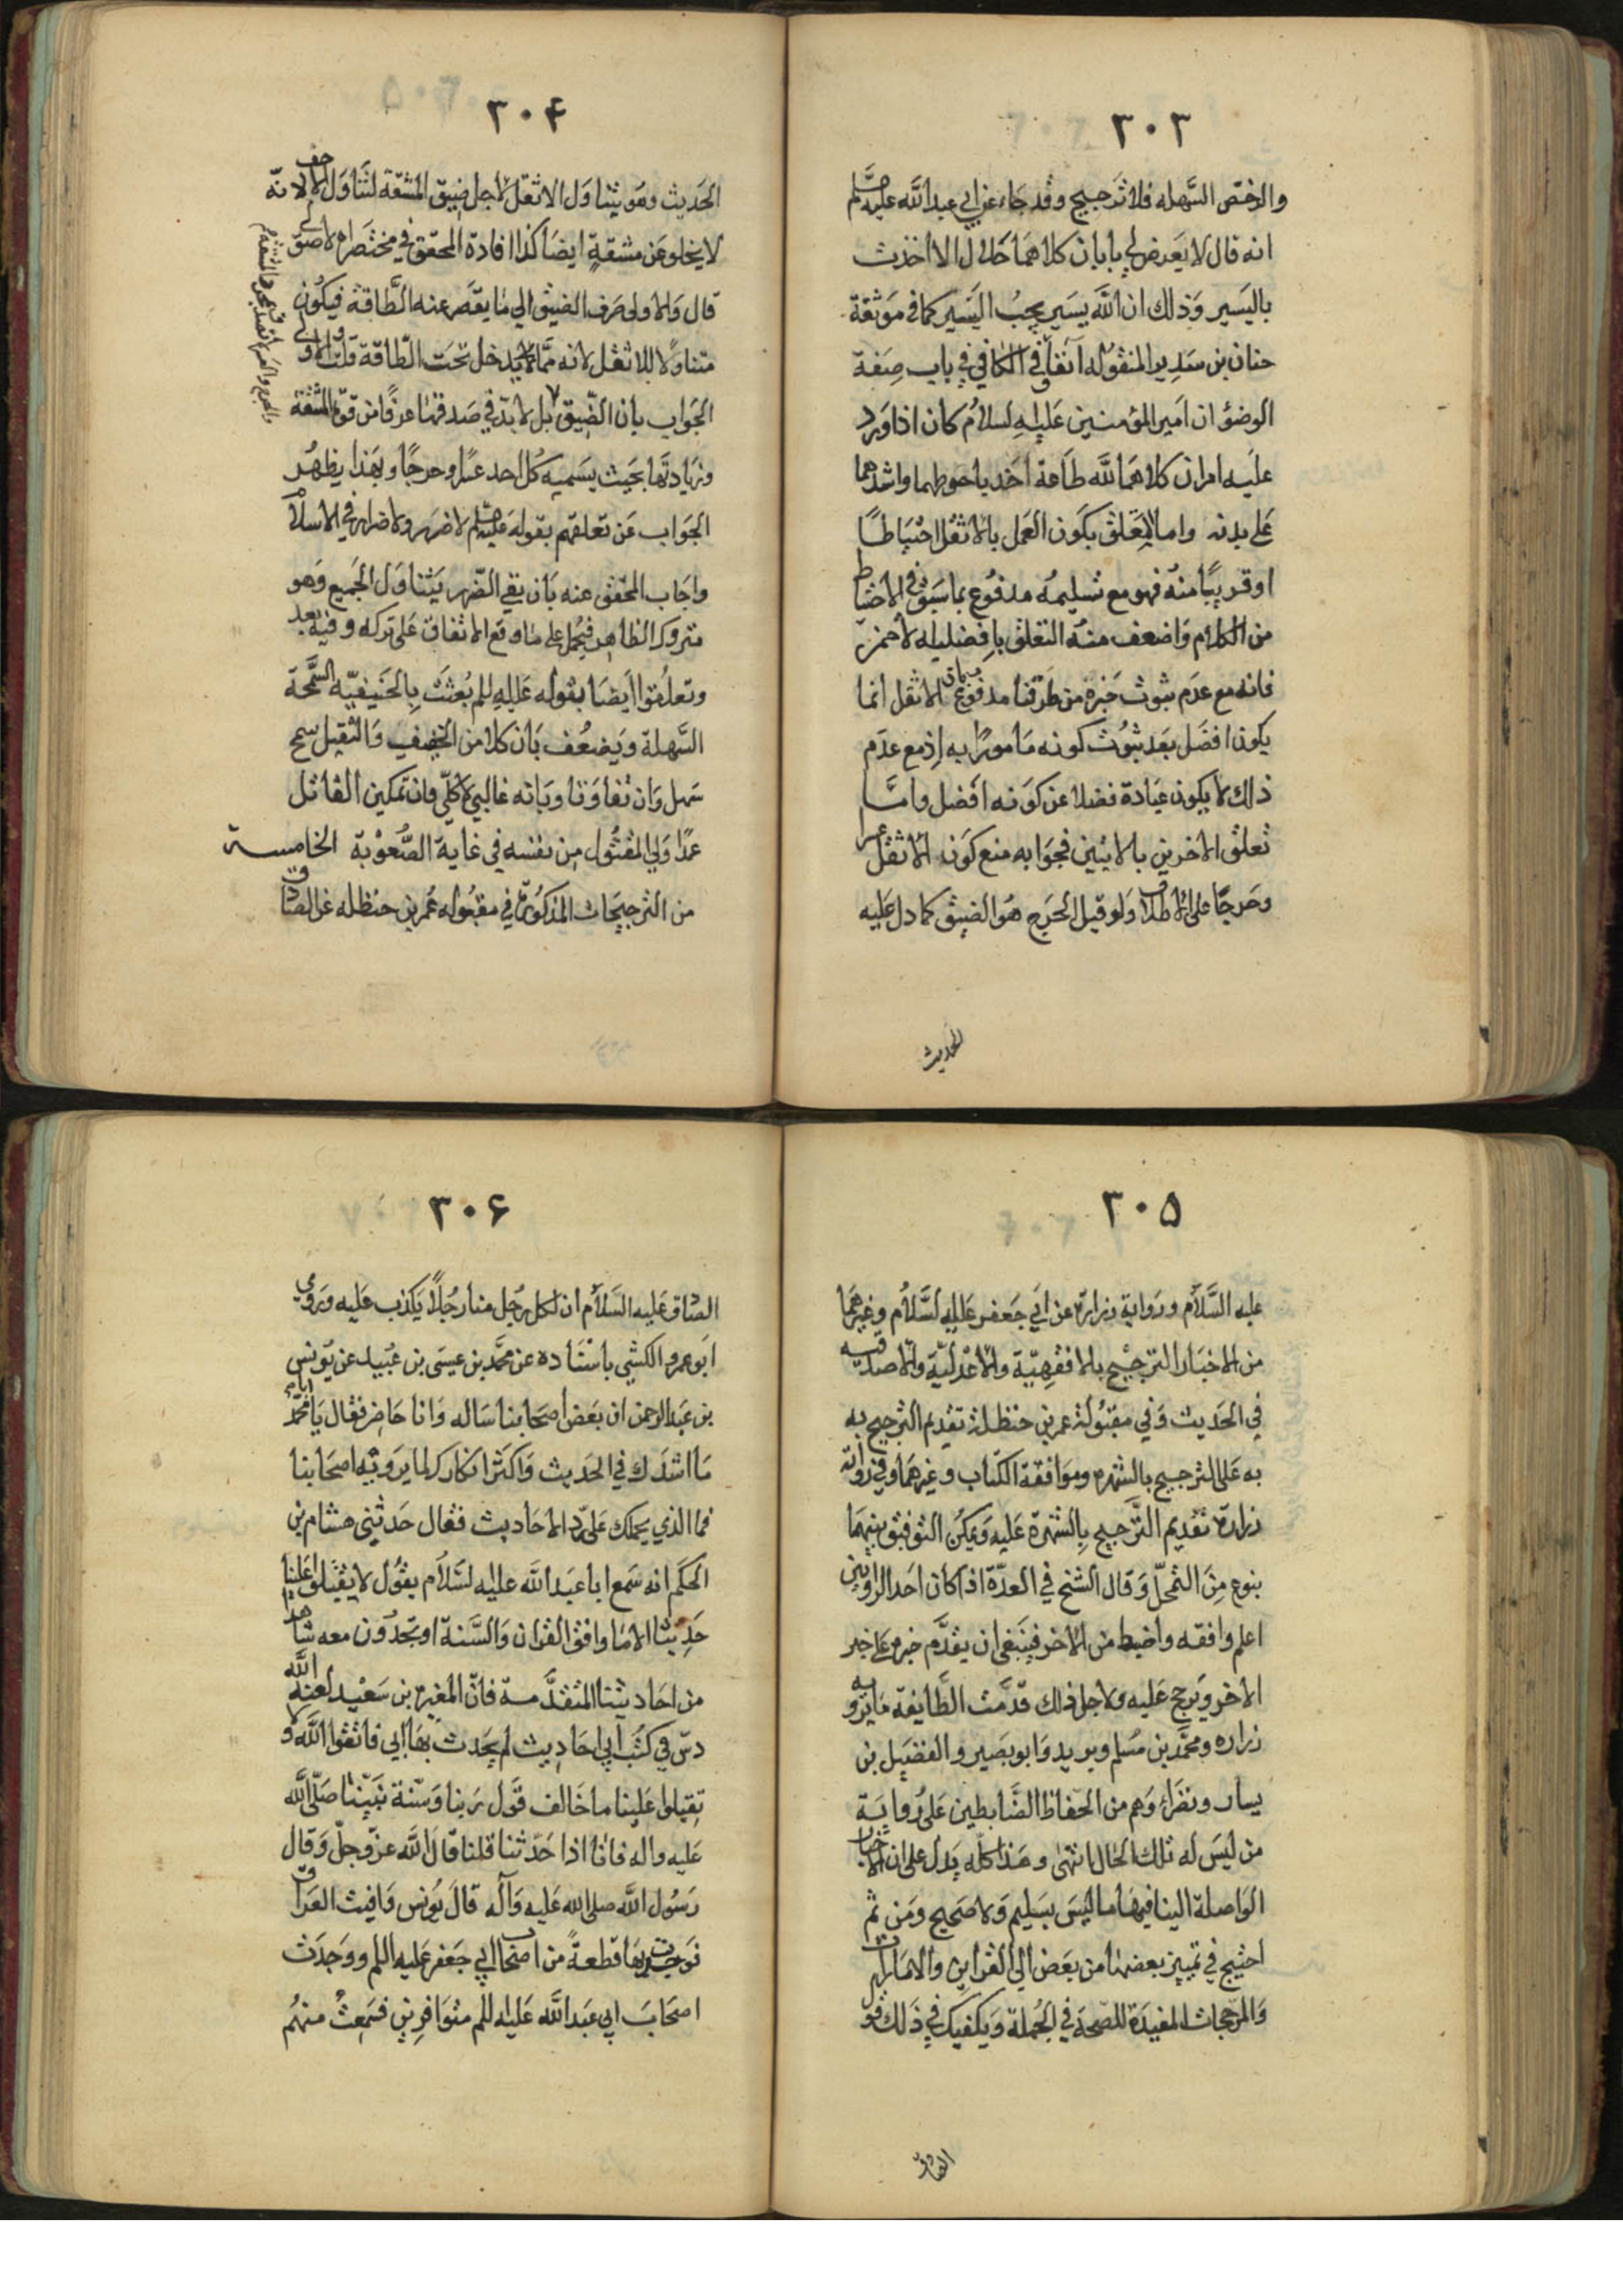 ٣٠٣
والرخص السهله فلا ترجيح وقد جاء عن ابي عبد الله عليه السلم
انه قال لا يعرض لي بابان كلاهما حلال الا اخذت
باليسير وذلك ان الله يسير يحب اليسير كما في موثقة
حنان بن سدير المنقوله آنفا في الكافي في باب صفة
الوضوُ ان امير المؤمنين عليه السلام كان اذا ورد
عليه امران كلاهما لله طاعة اخذ باحوطهما واشدهما
على بدنه واما التعلق بكون العمل بالاثقل احتياطا
او قريبا منه فهو مع تسليمه مدفوع بما سبق في الاحتياط
من الكلام واضعف منه التعلق بافضليله لاحمز
فانه مع عدم ثبوت خبره من طرقنا مدفوع بان الاثقل انما
يكون افضل بعد ثبوت كونه مامورا به اذ مع عدم
ذلك لا يكون عبادة فضلا عن كونه افضل واما
تعلق الاخرين بالايتين فجوابه منع كون الاثقل عسرا
وحرجا على الاطلاق ولو قيل الحرج هو الضيق كما دل عليه
الحديث
٣٠۴
الحديث وهو يتناول الاثقل لاجل ضيق المشقة لتناول الاخف لانه
لا يخلو عن مشقة ايضا كذا افادة المحقق في مختصر الاصول
قال والاولى صرف الضيق الي ما يقصر عنه الطاقة فيكون
متناولا للاثقل لانه مما لا يدخل تحت الطاقة قلت والاولى
الجواب بان الضيق بل لا بد في صدقها عرفا من قوة المشقة
وزيادتها بحيث يسميه كل احد عسرا وحرجا وبهذا يظهر
الجواب عن تعلقهم بقوله عليه السلم لا ضرر ولا ضرار في الاسلام
واجاب المحقق عنه بان نفي الضرر يتناول الجميع وهو
متروك الظاهر فيحمل على ما وقع الاتفاق على تركه وفيه بعد
وتعلقوا ايضا بقوله عليه السلم بعثت بالحنيفيه السمحة
السهلة ويضعف بان كلا من الخفيف والثقيل سمح
سهل وان تفاوتا وبانه غالبي لا كلي فان تمكين القاتل
عمدا ولي المقتول من نفسه في غاية الصعوبة الخامسة
من الترجيحات المذكورة في مقبوله عمر بن حنظله عن الصادق
٣٠۵
عليه السلام ورواية زرارة عن ابي جعفر عليه السلام وغيرهما
من الاخبار الترجيح بالافقهية والاعدلية والاصدقيه
في الحديث وفي مقبولة عمر بن حنظلة تقديم الترجيح به
به على الترجيح بالشهره وموافقة الكتاب وغيرهما وفي رواية
زرارة تقديم الترجيح بالشهرة عليه ويمكن التوفيق بينهما
بنوع من التمحل وقال الشخ في العدة اذا كان احد الراويين
اعلم وافقه واضبط من الاخر فينبغي ان يقدم خبره على خبر
الاخر ويرجح عليه ولاجل ذلك قدمت الطايفة ما يرويه
زراره ومحمد بن مسلم وبريد وابو بصير والفضيل بن
يسار ونظراء وهم من الحفاظ الضابطين على رواية
من ليس له تلك الحال انتهى وهذا كله يدل على ان الاخبار
الواصلة الينا فيها ما ليس بسليم ولا صحيح ومن ثم
احتيج في تمييز بعضها من بعض الي القراين والامارات
والمرجحات المفيدة للصحة في الجملة ويكفيك في ذلك قول
الصادق
٣٠۶
الصادق عليه السلام ان لكل رجل منا رجلا يكذب عليه وروي
ابو عمرو الكشي باسناده عن محمد بن عيسى بن عبيد عن يونس
بن عبد الرحمن ان بعض اصحابنا ساله وانا حاضر فقال يا ابا محمد
ما اشدك في الحديث واكثر انكارك لما يرويه اصحابنا
فما الذي يحملك على رد الاحاديث فقال حدثني هشام بن
الحكم انه سمع ابا عبد الله عليه السلام يقول لا يقبلوا علينا
حديثا الا ما وافق القران والسنة او تجدون معه شاهدا
من احاديثنا المتقدمة فان المغيره بن سعيد لعنه الله
دس في كتب ابي احاديث لم يحدث بها ابي فاتقوا الله ولا
تقبلوا علينا ما خالف قول ربنا وسنة نبينا صلى الله
عليه واله فانا اذا حدثنا قلنا قال الله عز وجل وقال
رسول الله صلى الله عليه وآله قال يونس وافيت العراق
فوجدت بها قطعة من اصحاب ابي جعفر عليه السلم ووجدت
اصحاب ابي عبد الله عليه السلم متوافرين فسمعت منهم